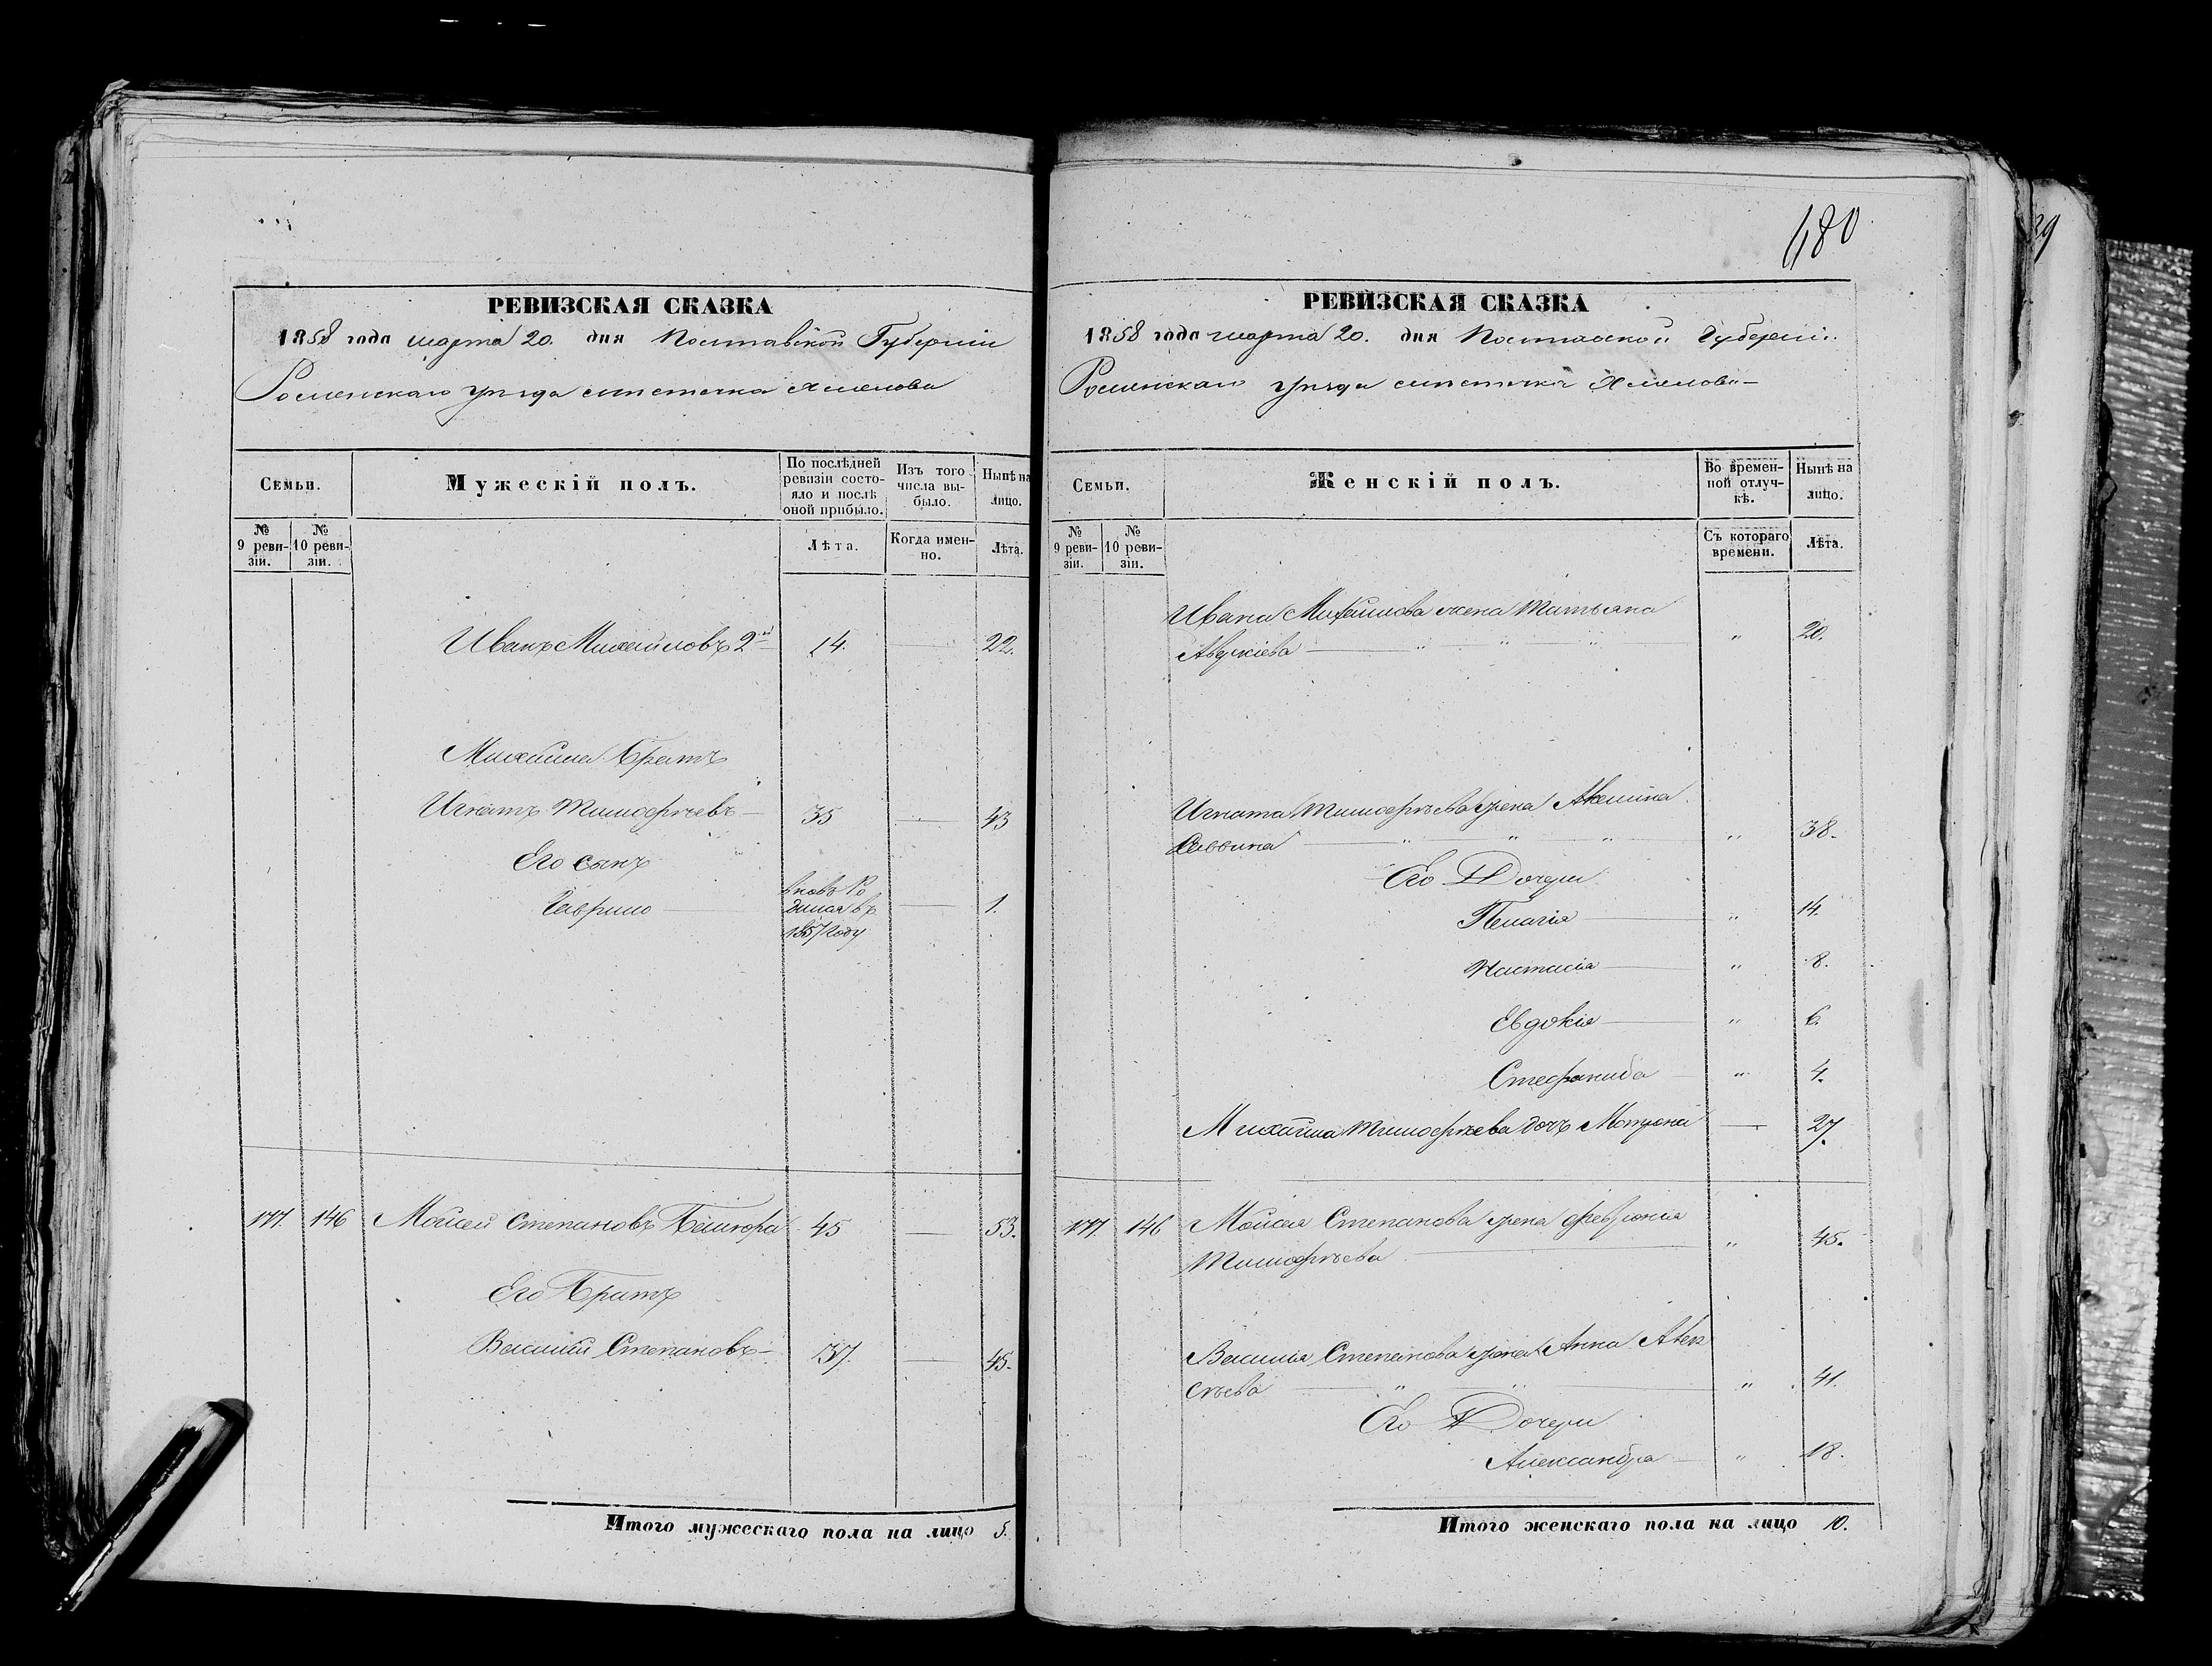 РЕВИЗСКАЯ СКАЗКА
1858 года марта 20. дня Полтавской Губерніи
Роменскаго уѣзда мѣстечка Хмелова
Семьи.
Мужескій полъ.
По послѣдней ревизіи состояло и послѣ оной прибыло.
Изъ того числа выбыло.
Нынѣ на лицо.
№ 9 ревизіи.
№ 10 ревизіи.
Лѣта.
Когда именно.
Лѣта.
Иванъ Михайловъ 2й 14. 22.
Михайла Братъ
Игнатъ Тимофѣевъ 35 43
Его сынъ
Гаврило
вновь Ро
дился въ
1857 году
1.
177. 146 Мойсей Степановъ 45 53.
Его Братъ
Василій Степановъ 37. 45.
Итого мужескаго пола на лицо 5.
480
РЕВИЗСКАЯ СКАЗКА
1858 года марта 20. дня Полтавской Губерніи
Роменскаго уѣзда мѣстечка Хмелова
Семьи.
Женскій полъ.
Во временной отлучкѣ.
Нынѣ на лицо.
№ 9 ревизіи.
№ 10 ревизіи.
Съ котораго времени.
Лѣта.
Ивана Михайлова жена Татьяна
Аверкіева " " " " 20.
Игната Тимофѣева жена Акелина
Саввина " " " 38.
Его Дочери
Пелагія " 14.
Настасія " 8.
Евдокія " 6.
Стефанида " 4.
Михайла Тимофѣева дочь Мотрона 27.
177. 146 Мойсея Степанова жена Февронія
Тимофѣева " 45.
Василія Степанова жена Анна Алек
сѣева " " " 41.
Его Дочери
Александра " 18.
Итого женскаго пола на лицо 10.
29